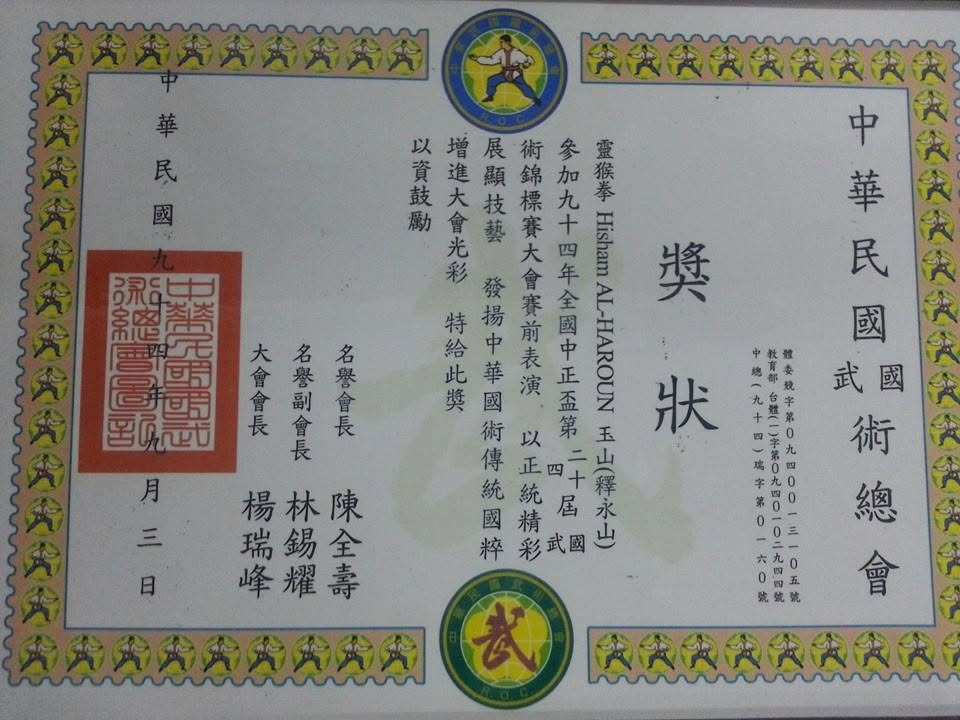 中華民國武術總會
R.O.C.
中華民國國武術總會
體委競字第0九四00一三一0五號
教育部 台體(一)字第0九四0一0二九四四號
中總(九十四)瑞字第0一六0號
獎狀
靈猴拳 Hisham AL-HAROUN 玉山(釋永山)
參加九十四年全國中正盃第二十四屆國武
術錦標賽大會賽前表演 以正統精彩
展顯技藝 發揚中華國術傳統國粹
增進大會光彩 特給此獎
以資鼓勵
名譽會長 陳全壽
名譽副會長 林錫耀
大會會長 楊瑞峰
中華民國九十四年九月三日
中華民國國武
術總會圖記
武
R.O.C.